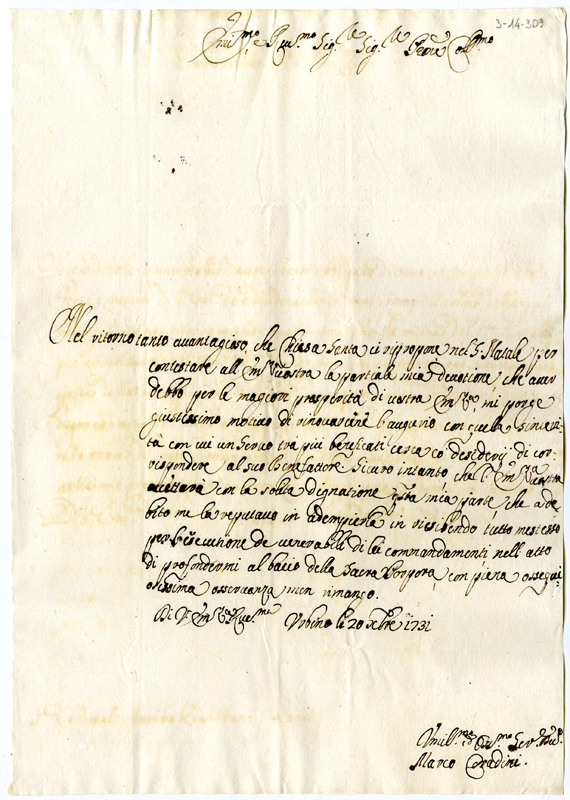 3-14-309
Em.mo e Rev.mo Sig.re Sig.re Prōne Col.mo
Nel ritorno tanto avantagioso, che Chiesa Santa ci ripropone nel S. Natale per
contestare all' Em.za Vostra la parziale mia devotione, che aver
debbo per le magiori prosperità di vostra Em.za, mi porge
giustissimo motivo di rinovarcene l'augurio con quella sinceri-
tà con cui un Servo trà più beneficati cerca cō desiderij di cor-
rispondere al suo Benefattore. Sicuro intanto che l'Em.za Vostra
accettarà con la solita dignatione questa mia parte, che a de-
bito me la reputavo in adempierla, in riesibendo tutto me stesso
per l'esecutione de venerabili di lei commandamenti nell' atto
di profondermi al baccio della Sacra Porpora, con piena ossequi-
osissima osservanza men rimango.
Di V. Em.za Rev.ma Urbino li 20 Xbre 1731
Umil.mo Dev.mo Ser.
Marco Corradini.